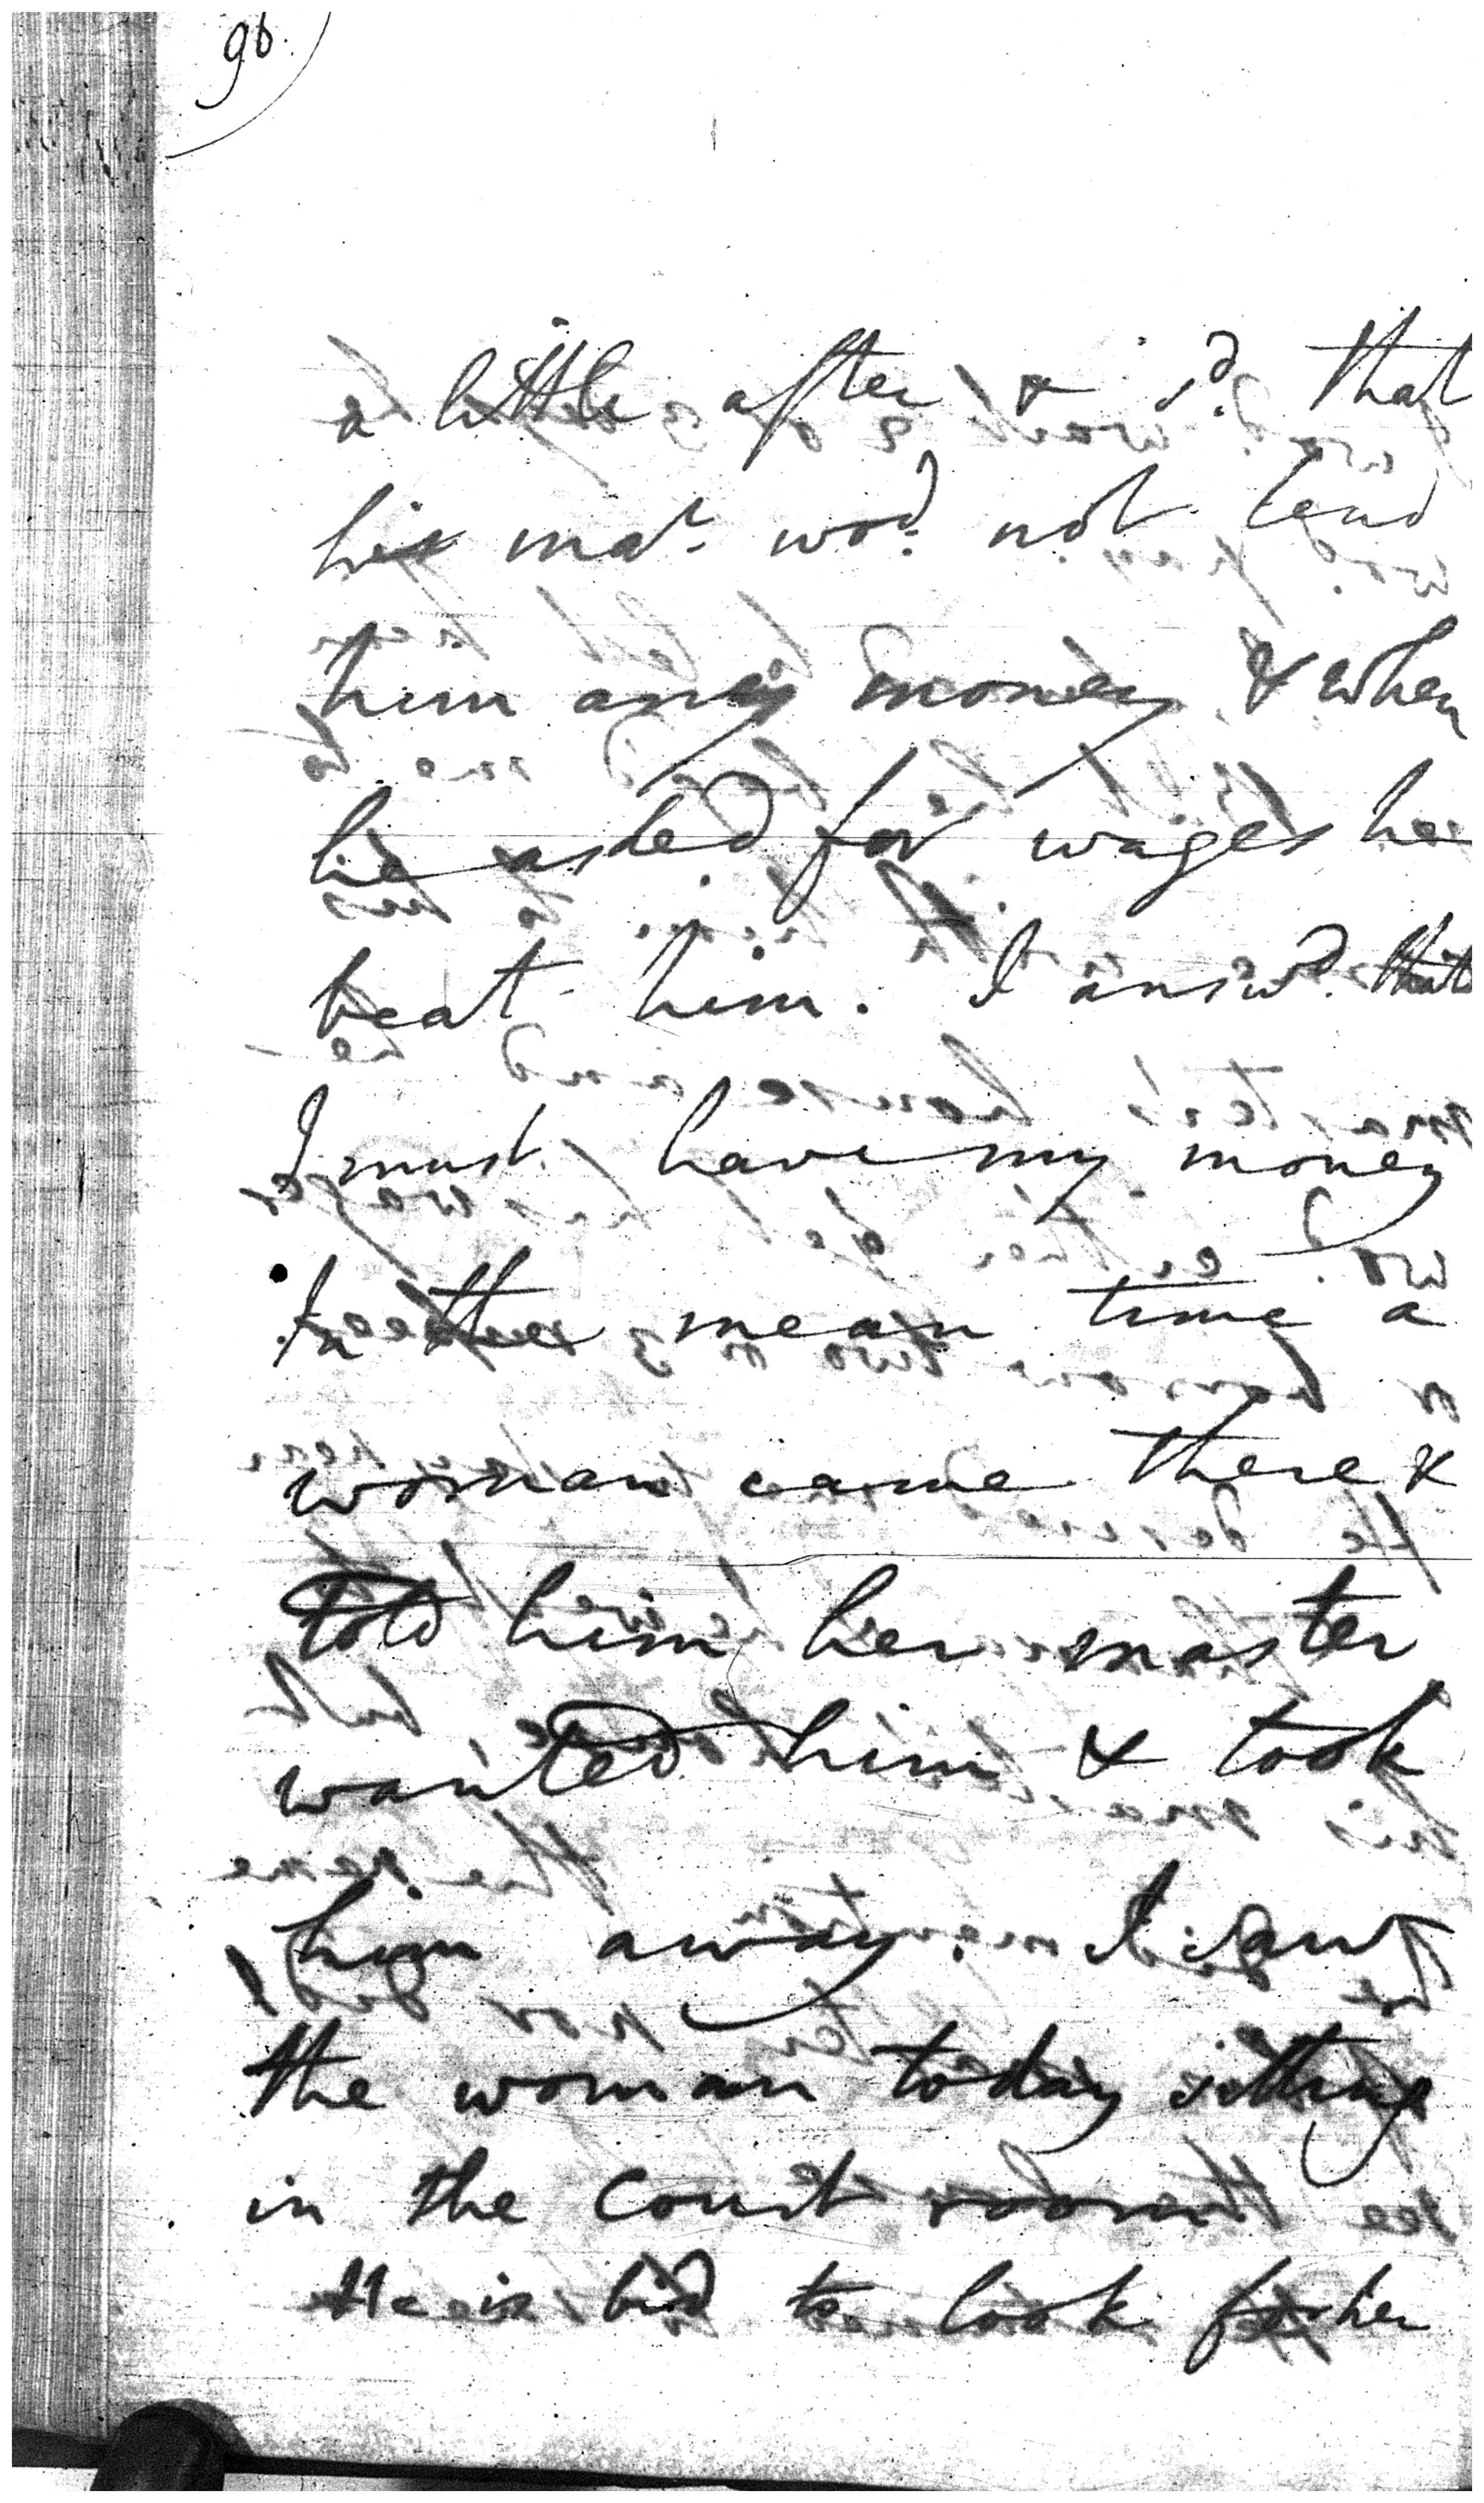 96.
a little after & sd. that
his mar. wod. not lend
him any money & when
he asked for wages he
beat him. I answd. that
I must have my money
In the mean time a
woman came there &
told him her master
wanted him & took
him away. I saw
the woman today sitting
in the Court room
He is bid to look for her